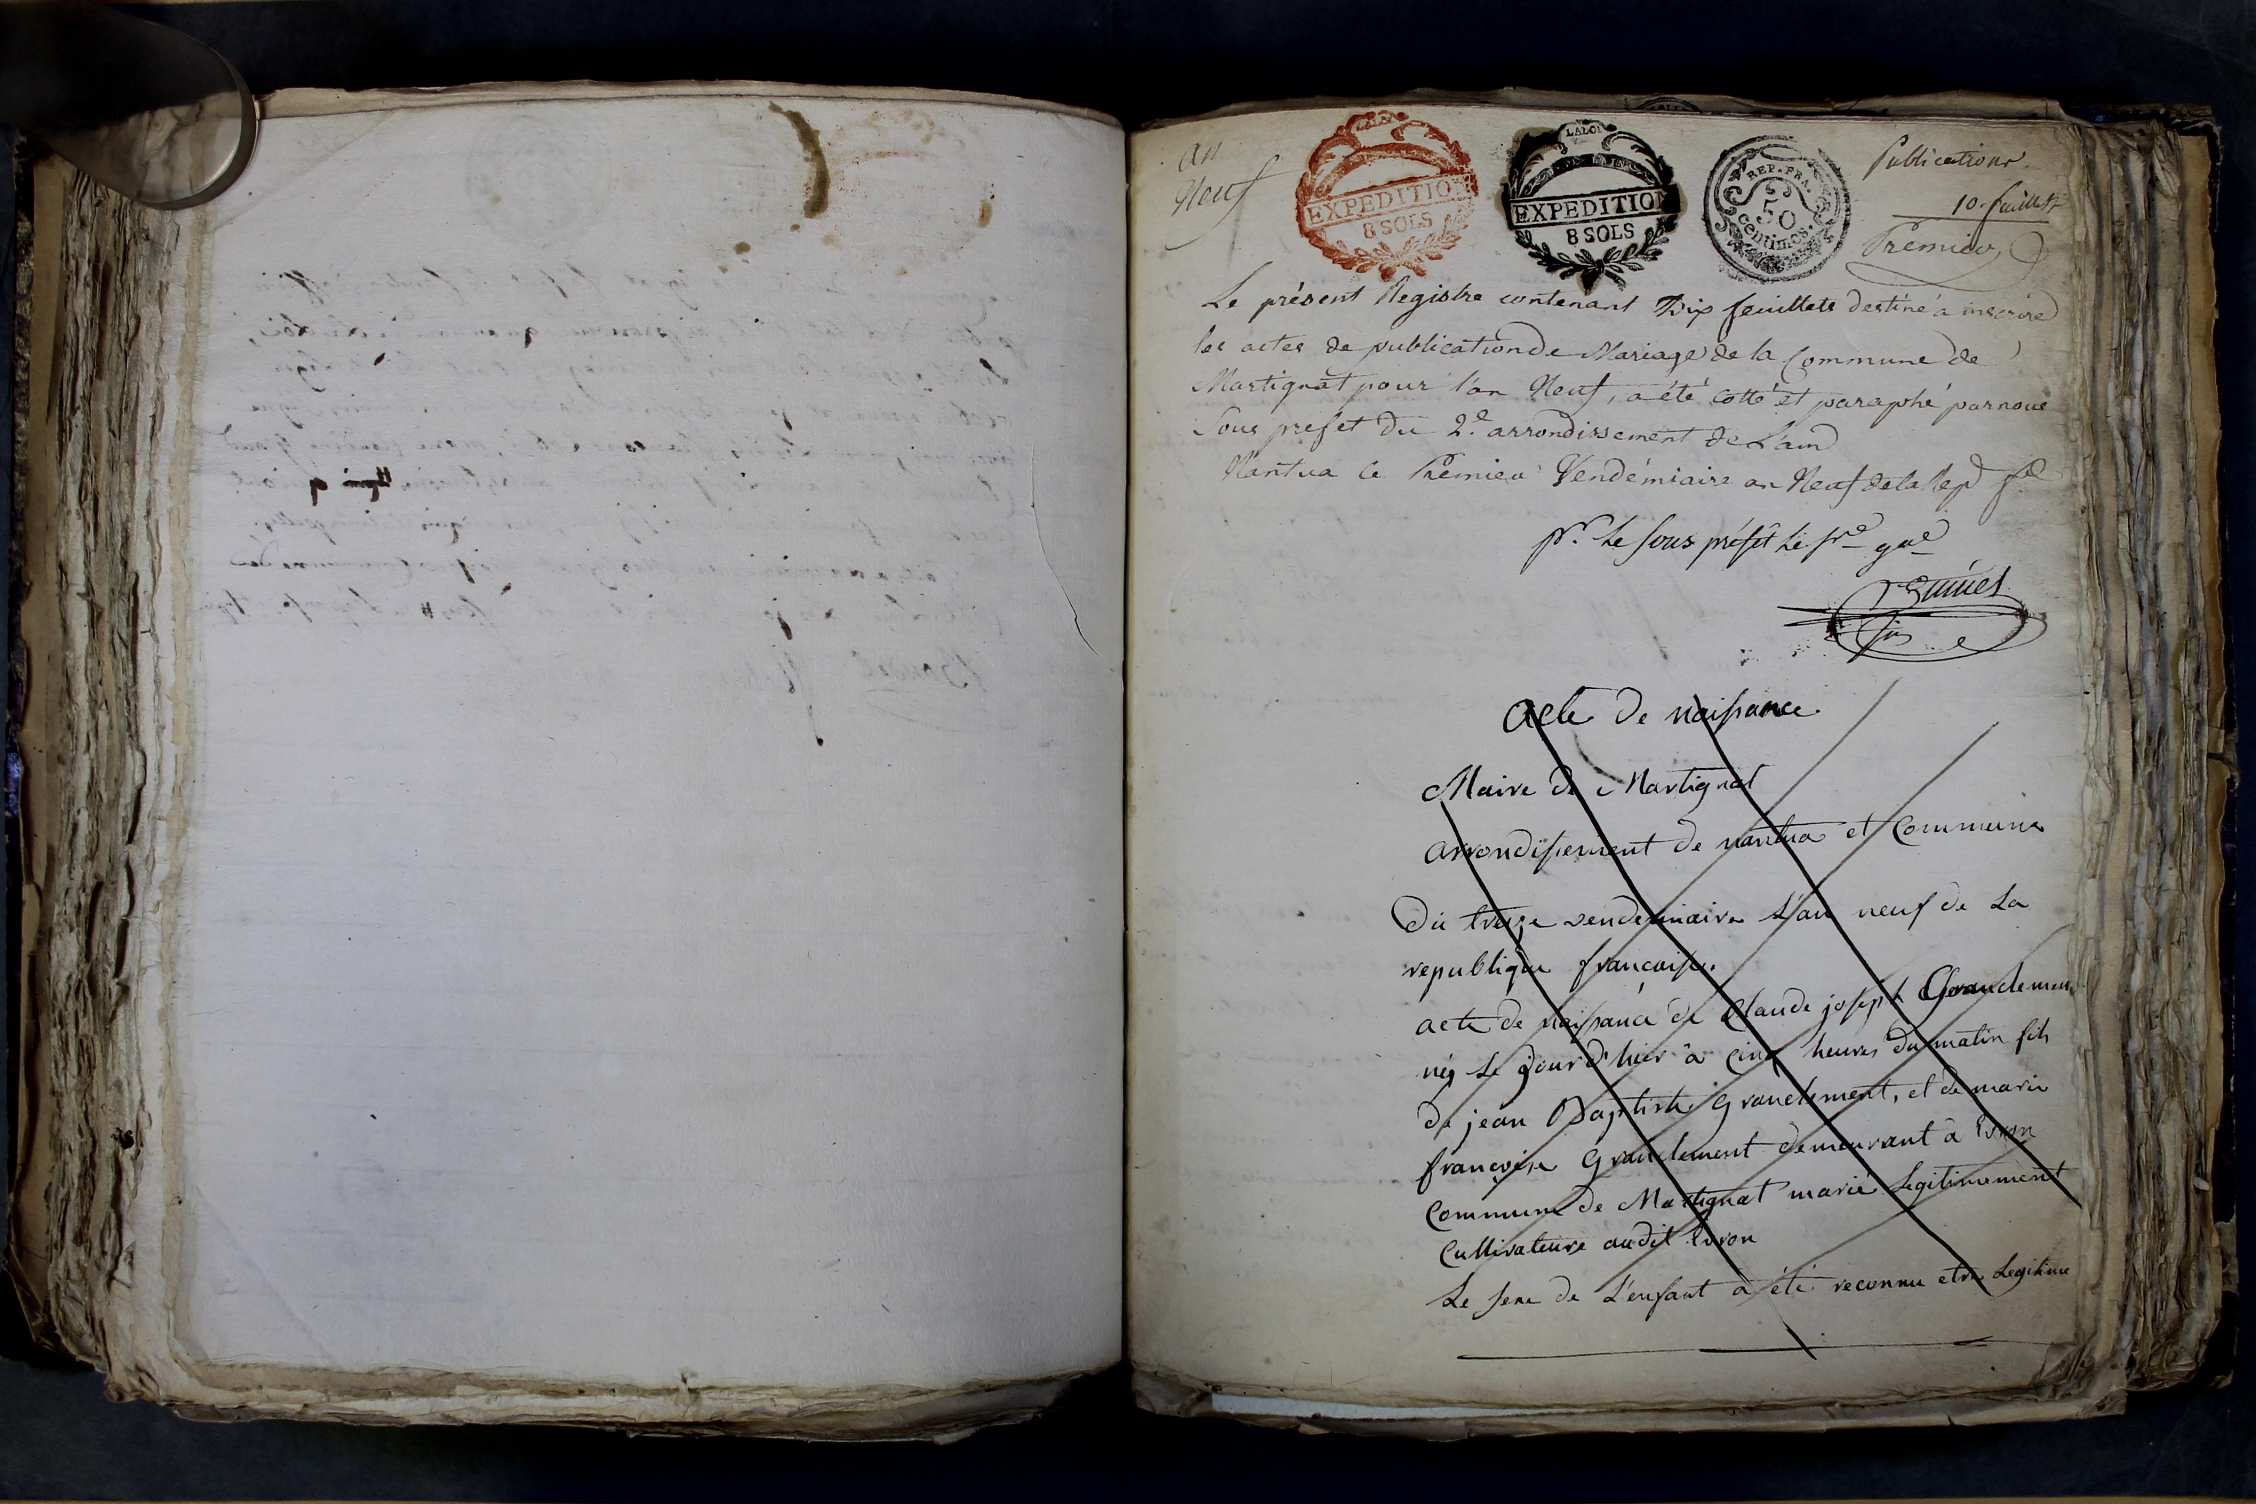 an
Neuf
EXPEDITION
8 SOLS
LA LOI
EXPEDITION
8 SOLS
REP. FRA.
50
Centimes.
Publications
10. feuillets
Premier
Le présent Registre contenant Dix feuillets destiné à inscrire
les actes de publication de Mariage de la Commune de
Martignat pour l'an Neuf, a été cotté et paraphé par nous
Sous prefet du 2e. arrondissement de L'ain
Nantua le Premier Vendémiaire an Neuf de la Rep fse
pr. Le sous préfêt Le sre gal
acte de naissance
Maire de Martignat
arrondissement de nantua et Commune
Du treize vendemiaire L'an neuf de La
republique francaise.
acte de naissance de Claude joseph Grandclement
néz Le jour d'hier à cinq heures du matin fils
de jean Baptiste grandclement, et de marie
françoise Grandclement demeurant à Evron
Commune de Martignat marié Legitimement
Cultivateurs audit Evron
Le sexe de L'enfant a été reconnu etre Legitime